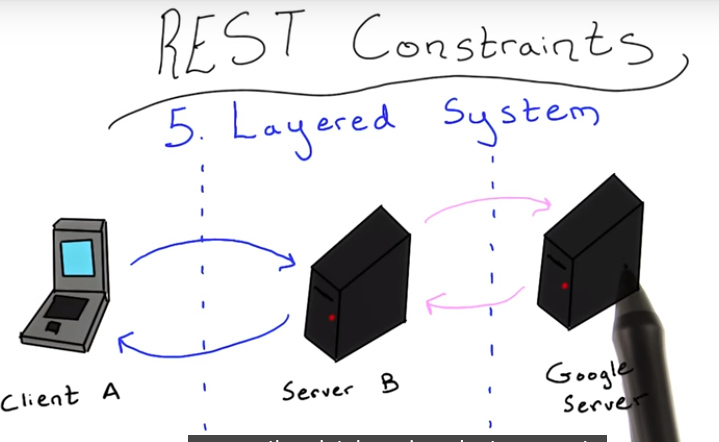 REST Constraints
5. Layered System
Client A
Server B
Google
Server